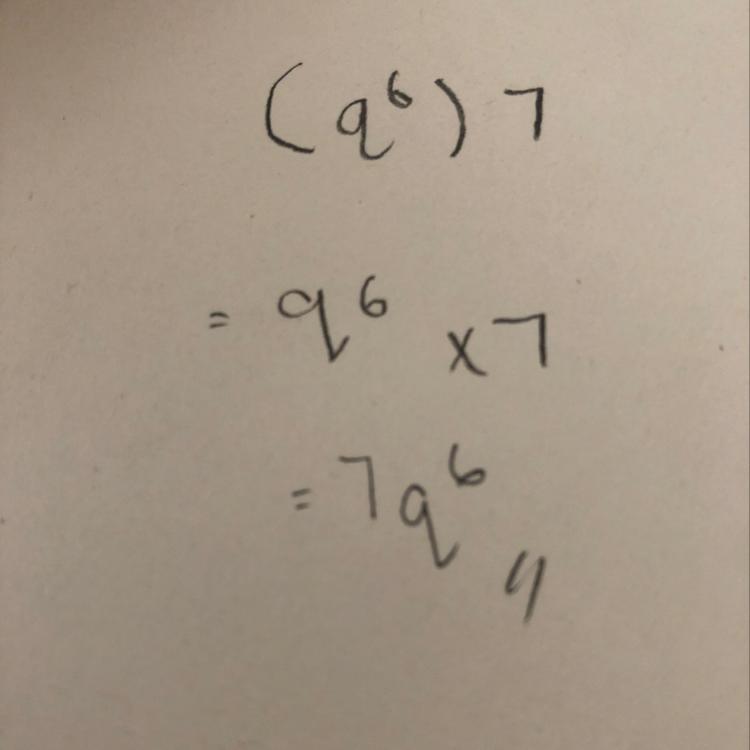 (q⁶) 7
= q⁶ x 7
= 7q⁶ //